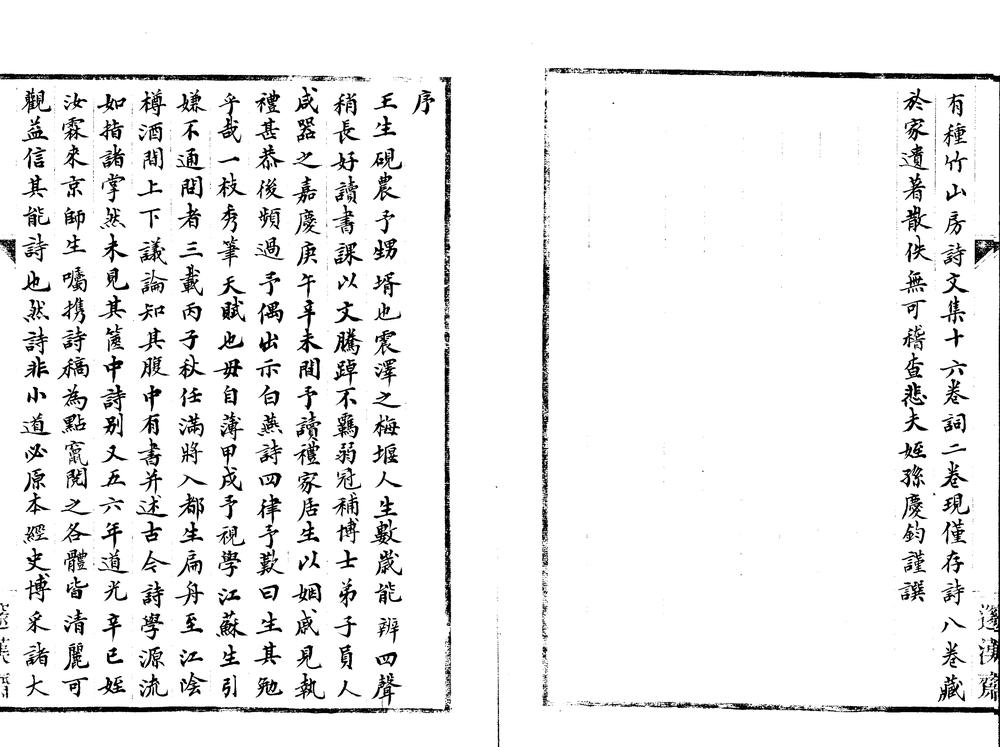 有種竹山房詩文集十六卷詞二卷現僅存詩八卷藏
於家遺著散佚無可稽查悲夫姪孫慶鈞謹譔
序
王生硯農予甥壻也震澤之梅堰人生數歲能辨四聲
稍長好讀書課以文騰踔不羈弱冠補博士弟子員人
咸器之嘉慶庚午辛未間予讀禮家居生以姻戚見執
禮甚恭後頻過予偶出示白燕詩四律予歎曰生其勉
乎哉一枝秀筆天賦也毋自薄甲戌予視學江蘇生引
嫌不通問者三載丙子秋任滿將入都生扁舟至江陰
樽酒間上下議論知其腹中有書并述古今詩學源流
如指諸掌然未見其篋中詩别又五六年道光辛巳姪
汝霖來京師生囑携詩稿為點竄閱之各體皆清麗可
觀益信其能詩也然詩非小道必原本經史博采諸大